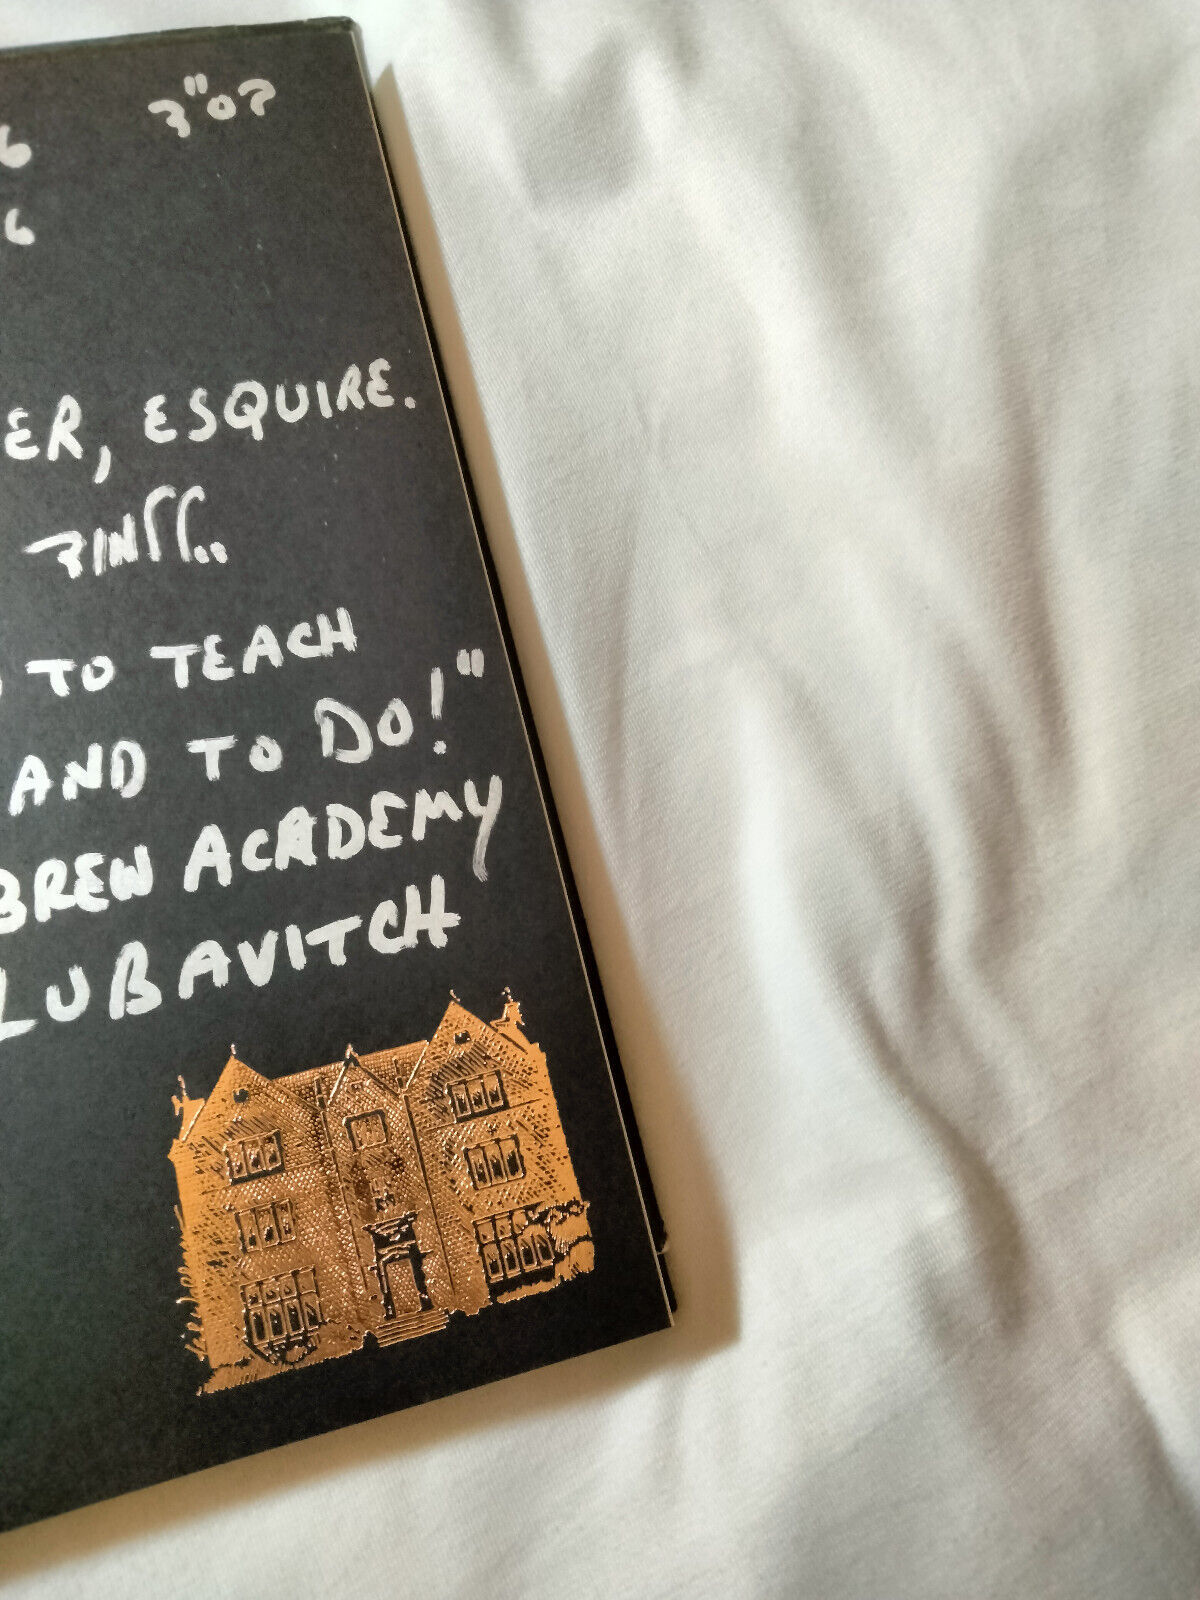 6 בס"ד
6
ER, ESQUIRE.
..ללמוד
TO TEACH
AND TO DO!"
BREW ACADEMY
LUBAVITCH